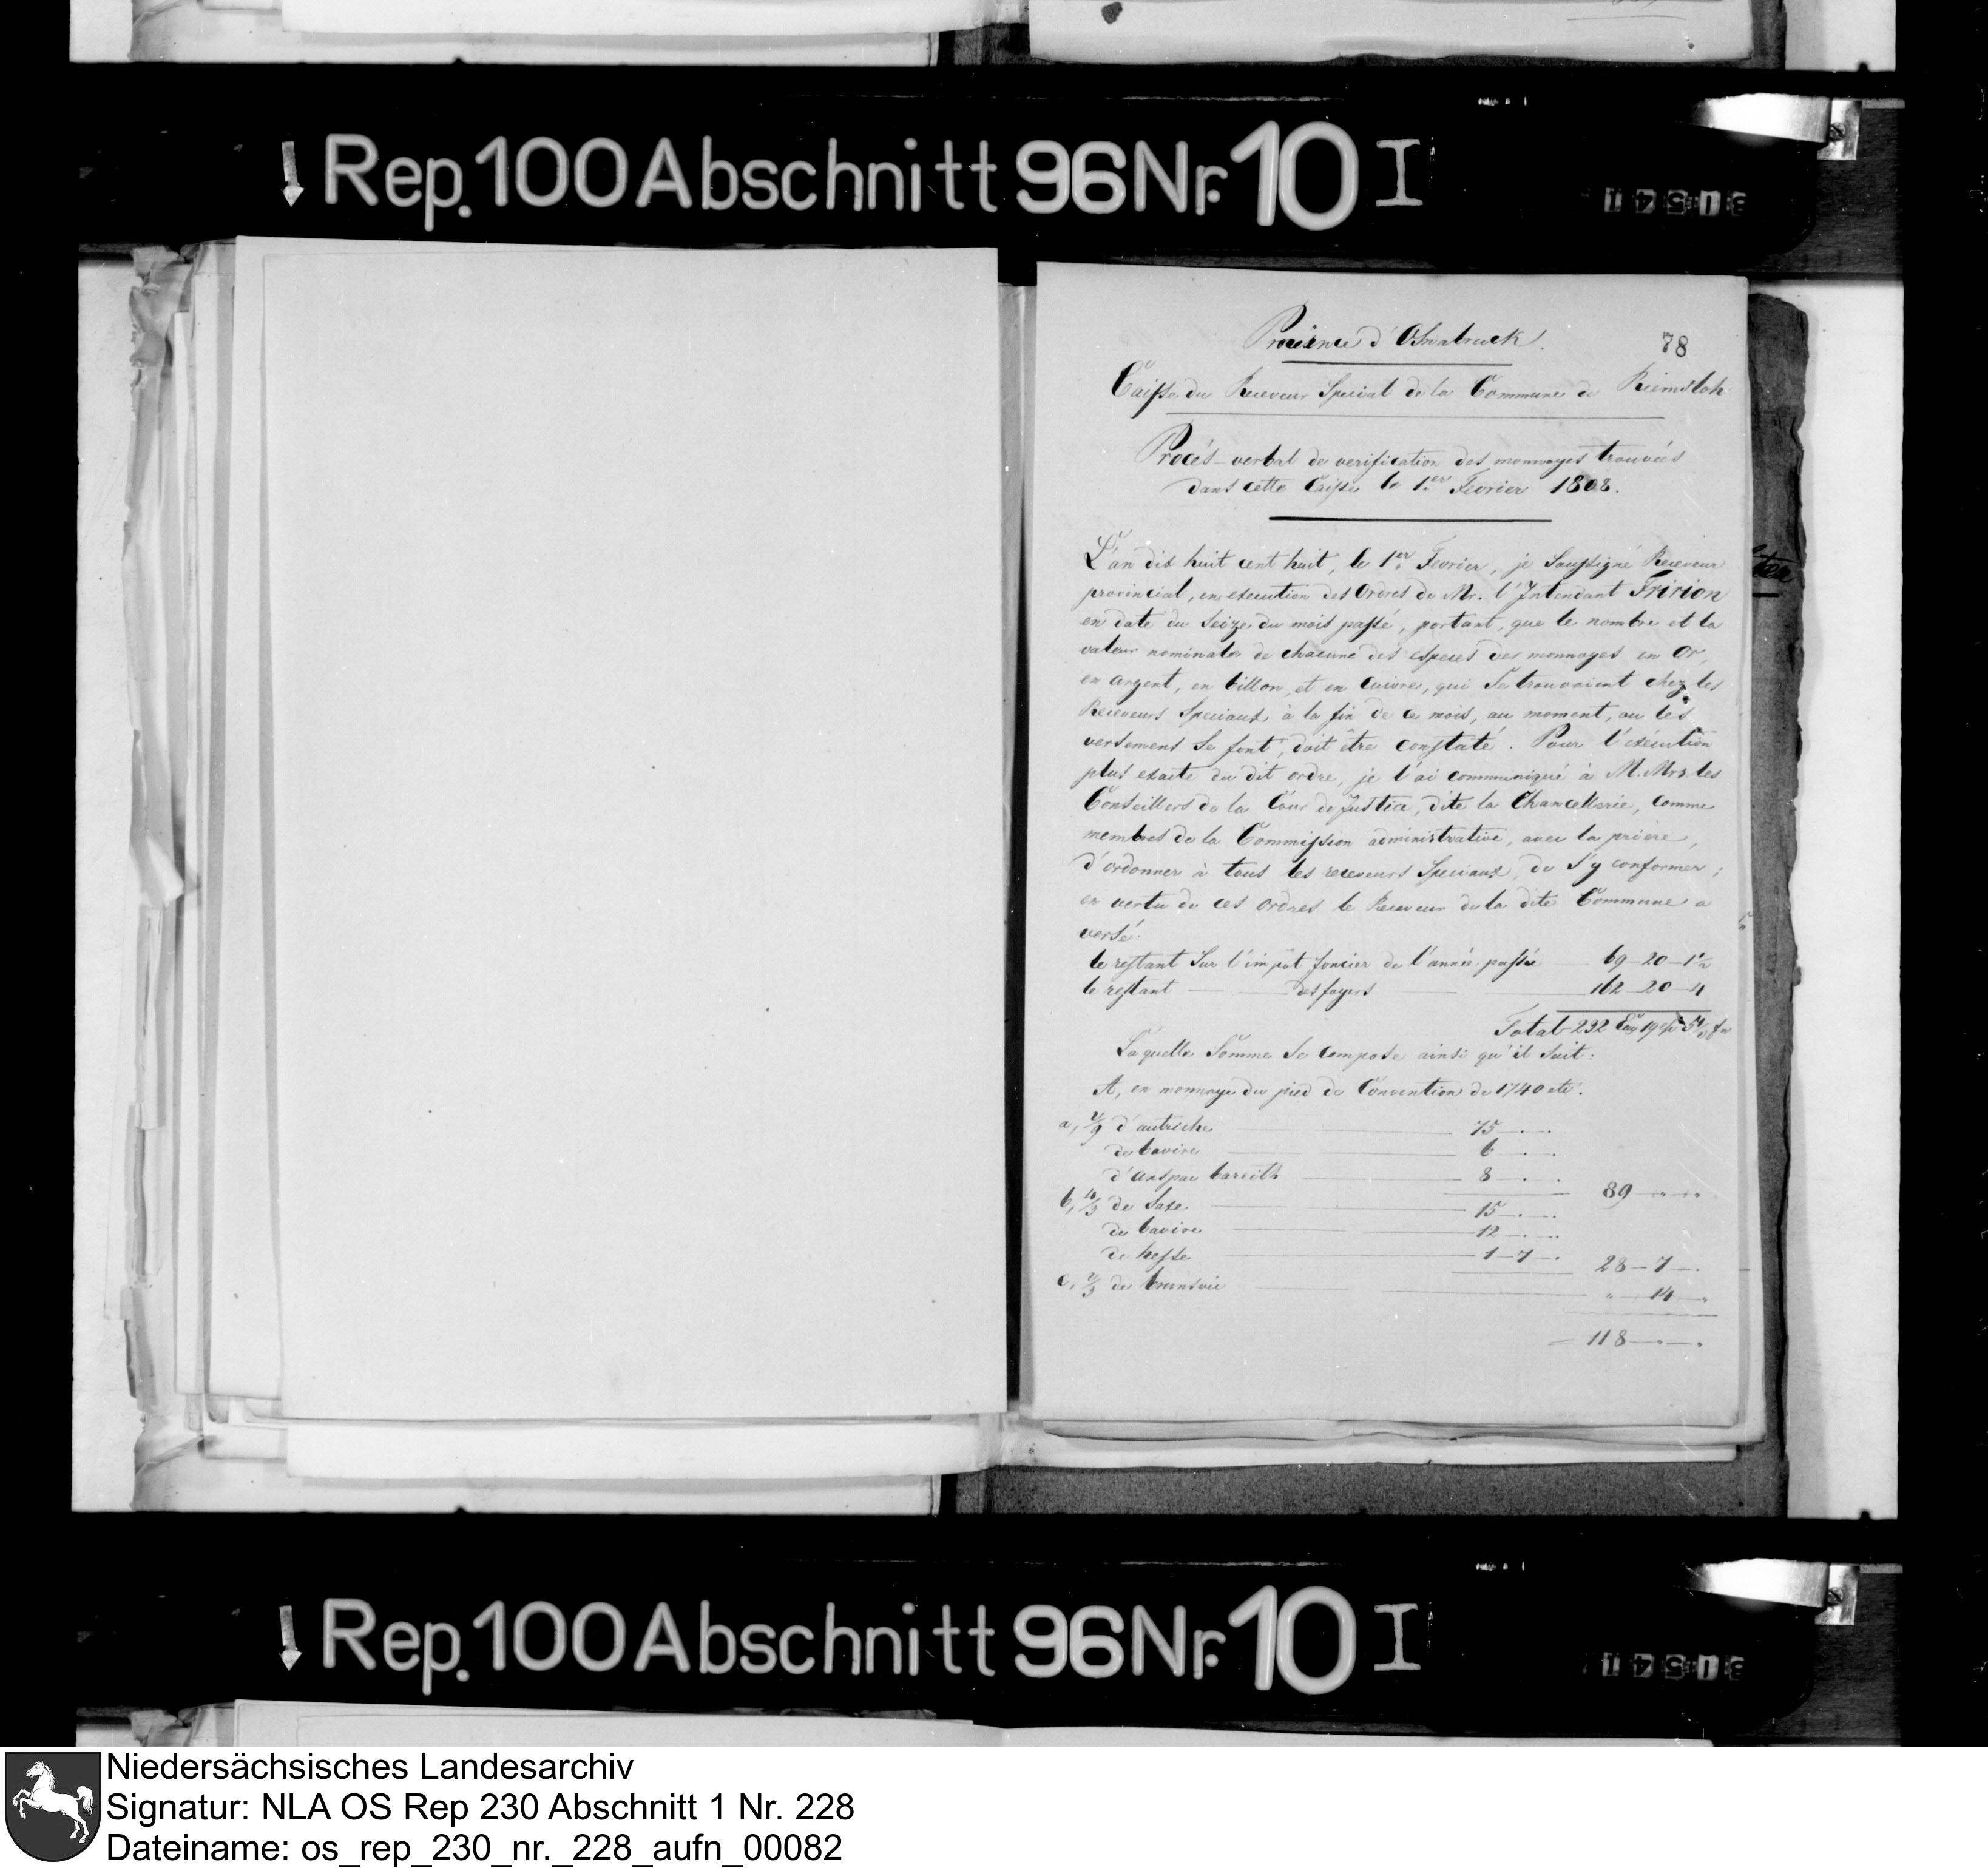 Rep. 100 Abschnitt 96 Nr. 10 I
Province d'Osnabruck.
78
Caisse du Receveur Special de la Commune de Riemsloh
Procés-verbal de verification des monnoyes trouvées
dans cette Caisse le 1er Fevrier 1808.
L'an dix huit cent huit, le 1er Fevrier, je Soussigné Receveur
provincial, en execution des Ordres de Mr. l'Intendant Fririon
en date du Seize du mois passé, portant, que le nombre et la
valeur nominale de chacune des especes des monnoyes en Or,
en argent, en billon, et en Cuivre, qui Se trouvoient chez les
Receveurs Speciaux à la fin de ce mois, au moment, ou les
versemens Se font, doit être constaté. Pour l'exécution
plus exacte du dit ordre, je l'ai communiqué à M. Mrs. les
Conseillers de la Cour de Justice, dite la Chancellerie, comme
membres de la Commission administrative, avec la prière,
d'ordonner à tous les receveurs Speciaux, de S'y conformer;
en vertu de ces ordres le Receveur de la dite Commune a
versé:
le restant Sur l'impot foncier de l'année passée 69-20-1½
le restant des foyers 162-20-4
Total 232
Laquelle Somme Se compose ainsi qu'il Suit:
A, en monnoye du pied de Convention de 1740 etc.
a, d'autriche 75
de baviere 6
d'anspac bareith 8
89 " "
b, 4/3 de Saxe 15
de baviere 12
de hesse 1-7
28-7-
c, 2/3 de brunsvic " 14 "
118 " "
Rep. 100 Abschnitt 96 Nr. 10 I
Niedersächsisches Landesarchiv
Signatur: NLA OS Rep 230 Abschnitt 1 Nr. 228
Dateiname: os_rep_230_nr._228_aufn_00082